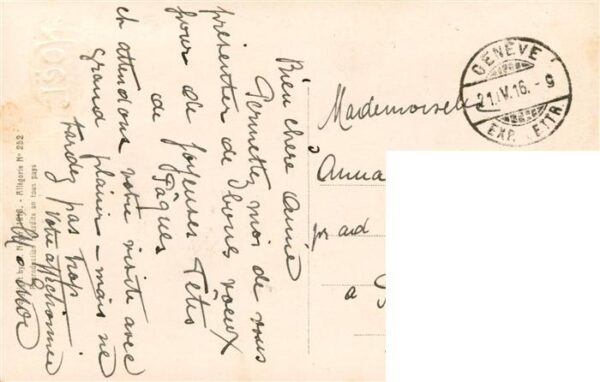 Bien chère Amie
Permettez moi de vous
présenter de bons vœux
pour de joyeuses Fêtes
de Pâques
et attendons votre visite avec
grand plaisir – mais ne
tardez pas trop
Votre affectionnée
GENÈVE
21.IV.16.-9
EXP. LETTR.
Mademoiselle
Anna
à
Allégorie No 252